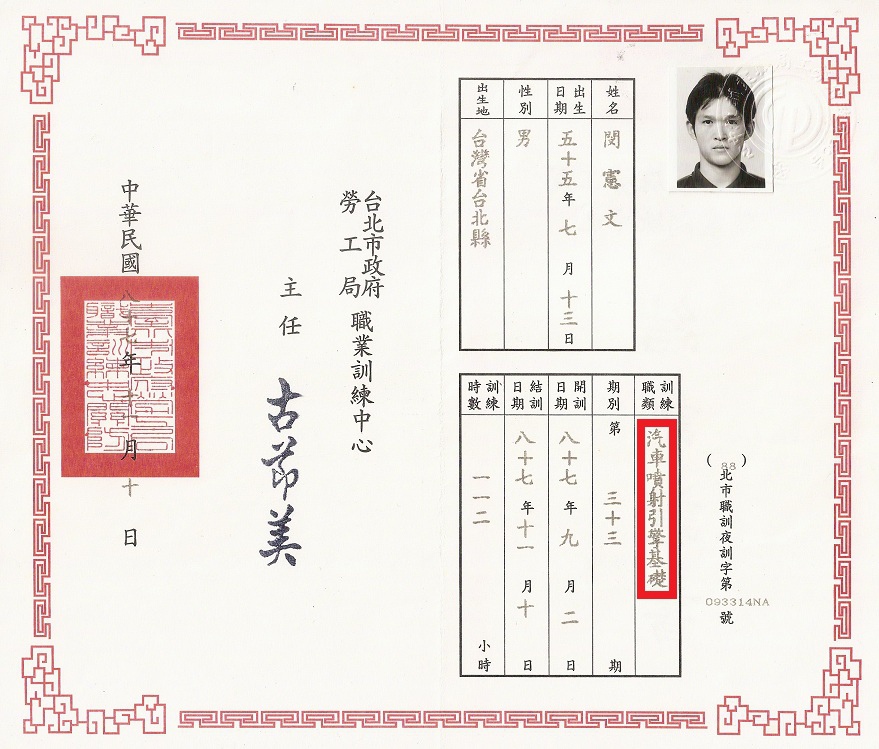 （88）北市職訓夜訓字第093314NA號
姓名 閔憲文
出生日期 五十五年七月十三日
性別 男
出生地 台灣省台北縣
訓練職類 汽車噴射引擎基礎
期別 第三十三期
開訓日期 八十七年九月二日
結訓日期 八十七年十一月十日
訓練時數 一一二小時
台北市政府勞工局職業訓練中心
主任 古茆美
中華民國八十七年十一月十日